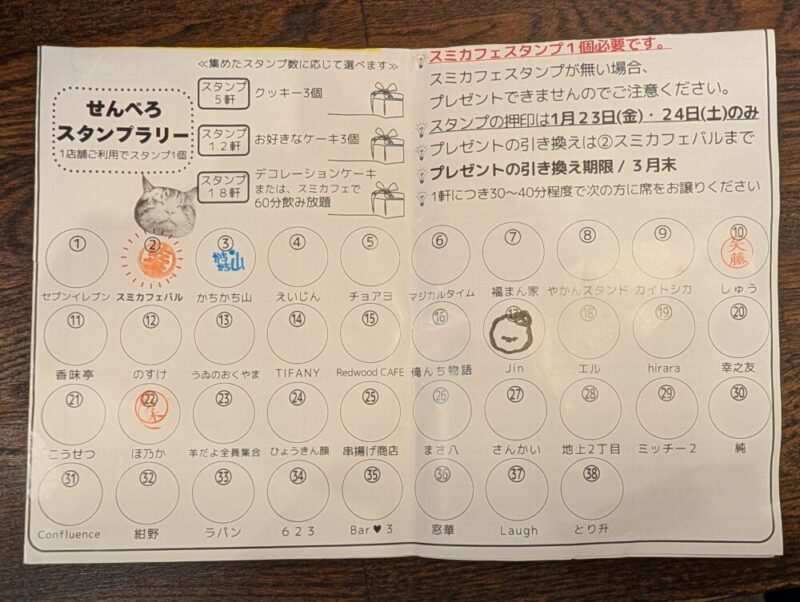 ≪集めたスタンプ数に応じて選べます≫
せんべろ
スタンプラリー
1店舗ご利用でスタンプ1個
スタンプ
5軒
クッキー3個
スタンプ
12軒
お好きなケーキ3個
スタンプ
18軒
デコレーションケーキ
または、スミカフェで
60分飲み放題
スミカフェスタンプ1個必要です。
スミカフェスタンプが無い場合、
プレゼントできませんのでご注意ください。
スタンプの押印は1月23日(金)・24日(土)のみ
プレゼントの引き換えは②スミカフェバルまで
プレゼントの引き換え期限/3月末
1軒につき30〜40分程度で次の方に席をお譲りください
① ② ③ ④ ⑤ ⑥ ⑦ ⑧ ⑨ ⑩
かちかち山
矢藤
セブンイレブン スミカフェバル かちかち山 えいじん チョアヨ マジカルタイム 福まん家 やかんスタンド カイトシカ しゅう
⑪ ⑫ ⑬ ⑭ ⑮ ⑯ ⑰ ⑱ ⑲ ⑳
香味亭 のすけ うゐのおくやま TIFANY Redwood CAFE 俺んち物語 Jin エル hirara 幸之友
㉑ ㉒ ㉓ ㉔ ㉕ ㉖ ㉗ ㉘ ㉙ ㉚
こうせつ ほ乃か 羊だよ全員集合 ひょうきん顔 串揚げ商店 まさ八 さんかい 地上2丁目 ミッチー2 純
㉛ ㉜ ㉝ ㉞ ㉟ ㊱ ㊲ ㊳
Confluence 紺野 ラパン 623 Bar♥3 窓華 Laugh とり升